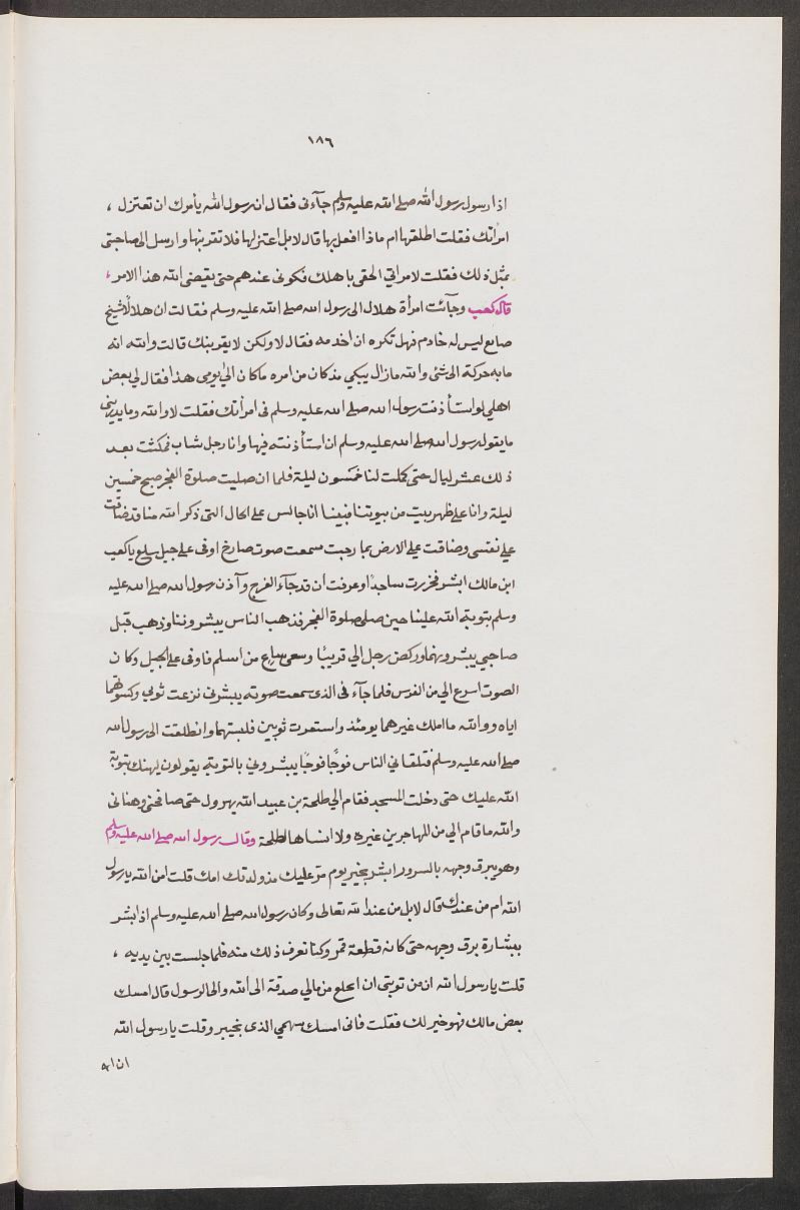 ١٨٦
اذا رسول رسول الله صلى الله عليه وسلم جآءنى فقال ان رسول الله يأمرك ان تعتزل ،
امرأتك فقلت اطلقها ام ماذا افعل بها قال لا بل اعتزلها فلا تقربنها وارسل الى صاحبتى
بمثل ذلك فقلت لامراتي الحقى باهلك فكونى عندهم حتى يقضى الله هذا الامر ،
قال كعب وجآئت امرأة هلال الى رسول الله صلى الله عليه وسلم فقالت ان هلالًا شيخ
ضايع ليس له خادم فهل تكره ان اخدمه فقال لا ولكن لا يقربنك قالت والله انه
ما به حركة الى شئ والله ما زال يبكي مذ كان من امره ما كان الىٰ يومى هذا فقال لي بعض
اهلي لو استأذنت رسول الله صلى الله عليه وسلم فى امرأتك فقلت لا والله وما يدرينى
ما يقول رسول الله صلى الله عليه وسلم ان استأذنته فيها وانا رجل شاب فمكثت بعد
ذلك عشر ليال حتى كملت لنا خمسون ليلة فلما ان صليت صلوة الفجر صبح خمسين
ليلة وانا على ظهر بيت من بيوتنا فبينا انا جالس على الحال التى ذكر الله منا قد ضاقت
علي نفسى وضاقت علي الارض بما رحبت سمعت صوت صارخ اوفى على جبل سلع يا كعب
ابن مالك ابشر فخررت ساجدًا وعرفت ان قد جآء الفرج وآذن رسول الله صلى الله عليه
وسلم بتوبة الله علينا حين صلى صلوة الفجر فذهب الناس يبشروننا وذهب قبل
صاحبي يبشرونهما وركض رجل الي قريبًا وسعى ساع من اسلم فاوفى على الجبل وكان
الصوت اسرع الي من الفرس فلما جآءنى الذى سمعت صوته يبشرنى نزعت ثوبى وكسوتهما
اياه ووالله ما املك غيرهما يومئذ واستعرت ثوبين فلبستهما وانطلقت الى رسول الله
صلى الله عليه وسلم فتلقاني الناس فوجًا فوجًا يبشروني بالتوبة يقولون ليهنك توبة
الله عليك حتى دخلت المسجد فقام الي طلحة بن عبيد الله يهرول حتى صافحنى وهنانى
والله ما قام الي من المهاجرين غيره ولا انساها لطلحة وقال رسول الله صلى الله عليه وسلم
وهو يبرق وجهه بالسرور ابشر بخير يوم مرّ عليك مذ ولدتك امك قلت امن الله يا رسول
الله ام من عندك قال لا بل من عند الله تعالى وكان رسول الله صلى الله عليه وسلم اذا بشر
ببشارة برق وجهه حتى كانه قطعة قمر وكنا نعرف ذلك منه فلما جلست بين يديه ،
قلت يا رسول الله ان من توبتى ان اخلع من مالي صدقة الى الله والى الرسول قال امسك
بعض مالك فهو خير لك فقلت فانى امسك سهمي الذى بخيبر وقلت يا رسول الله
ان الله